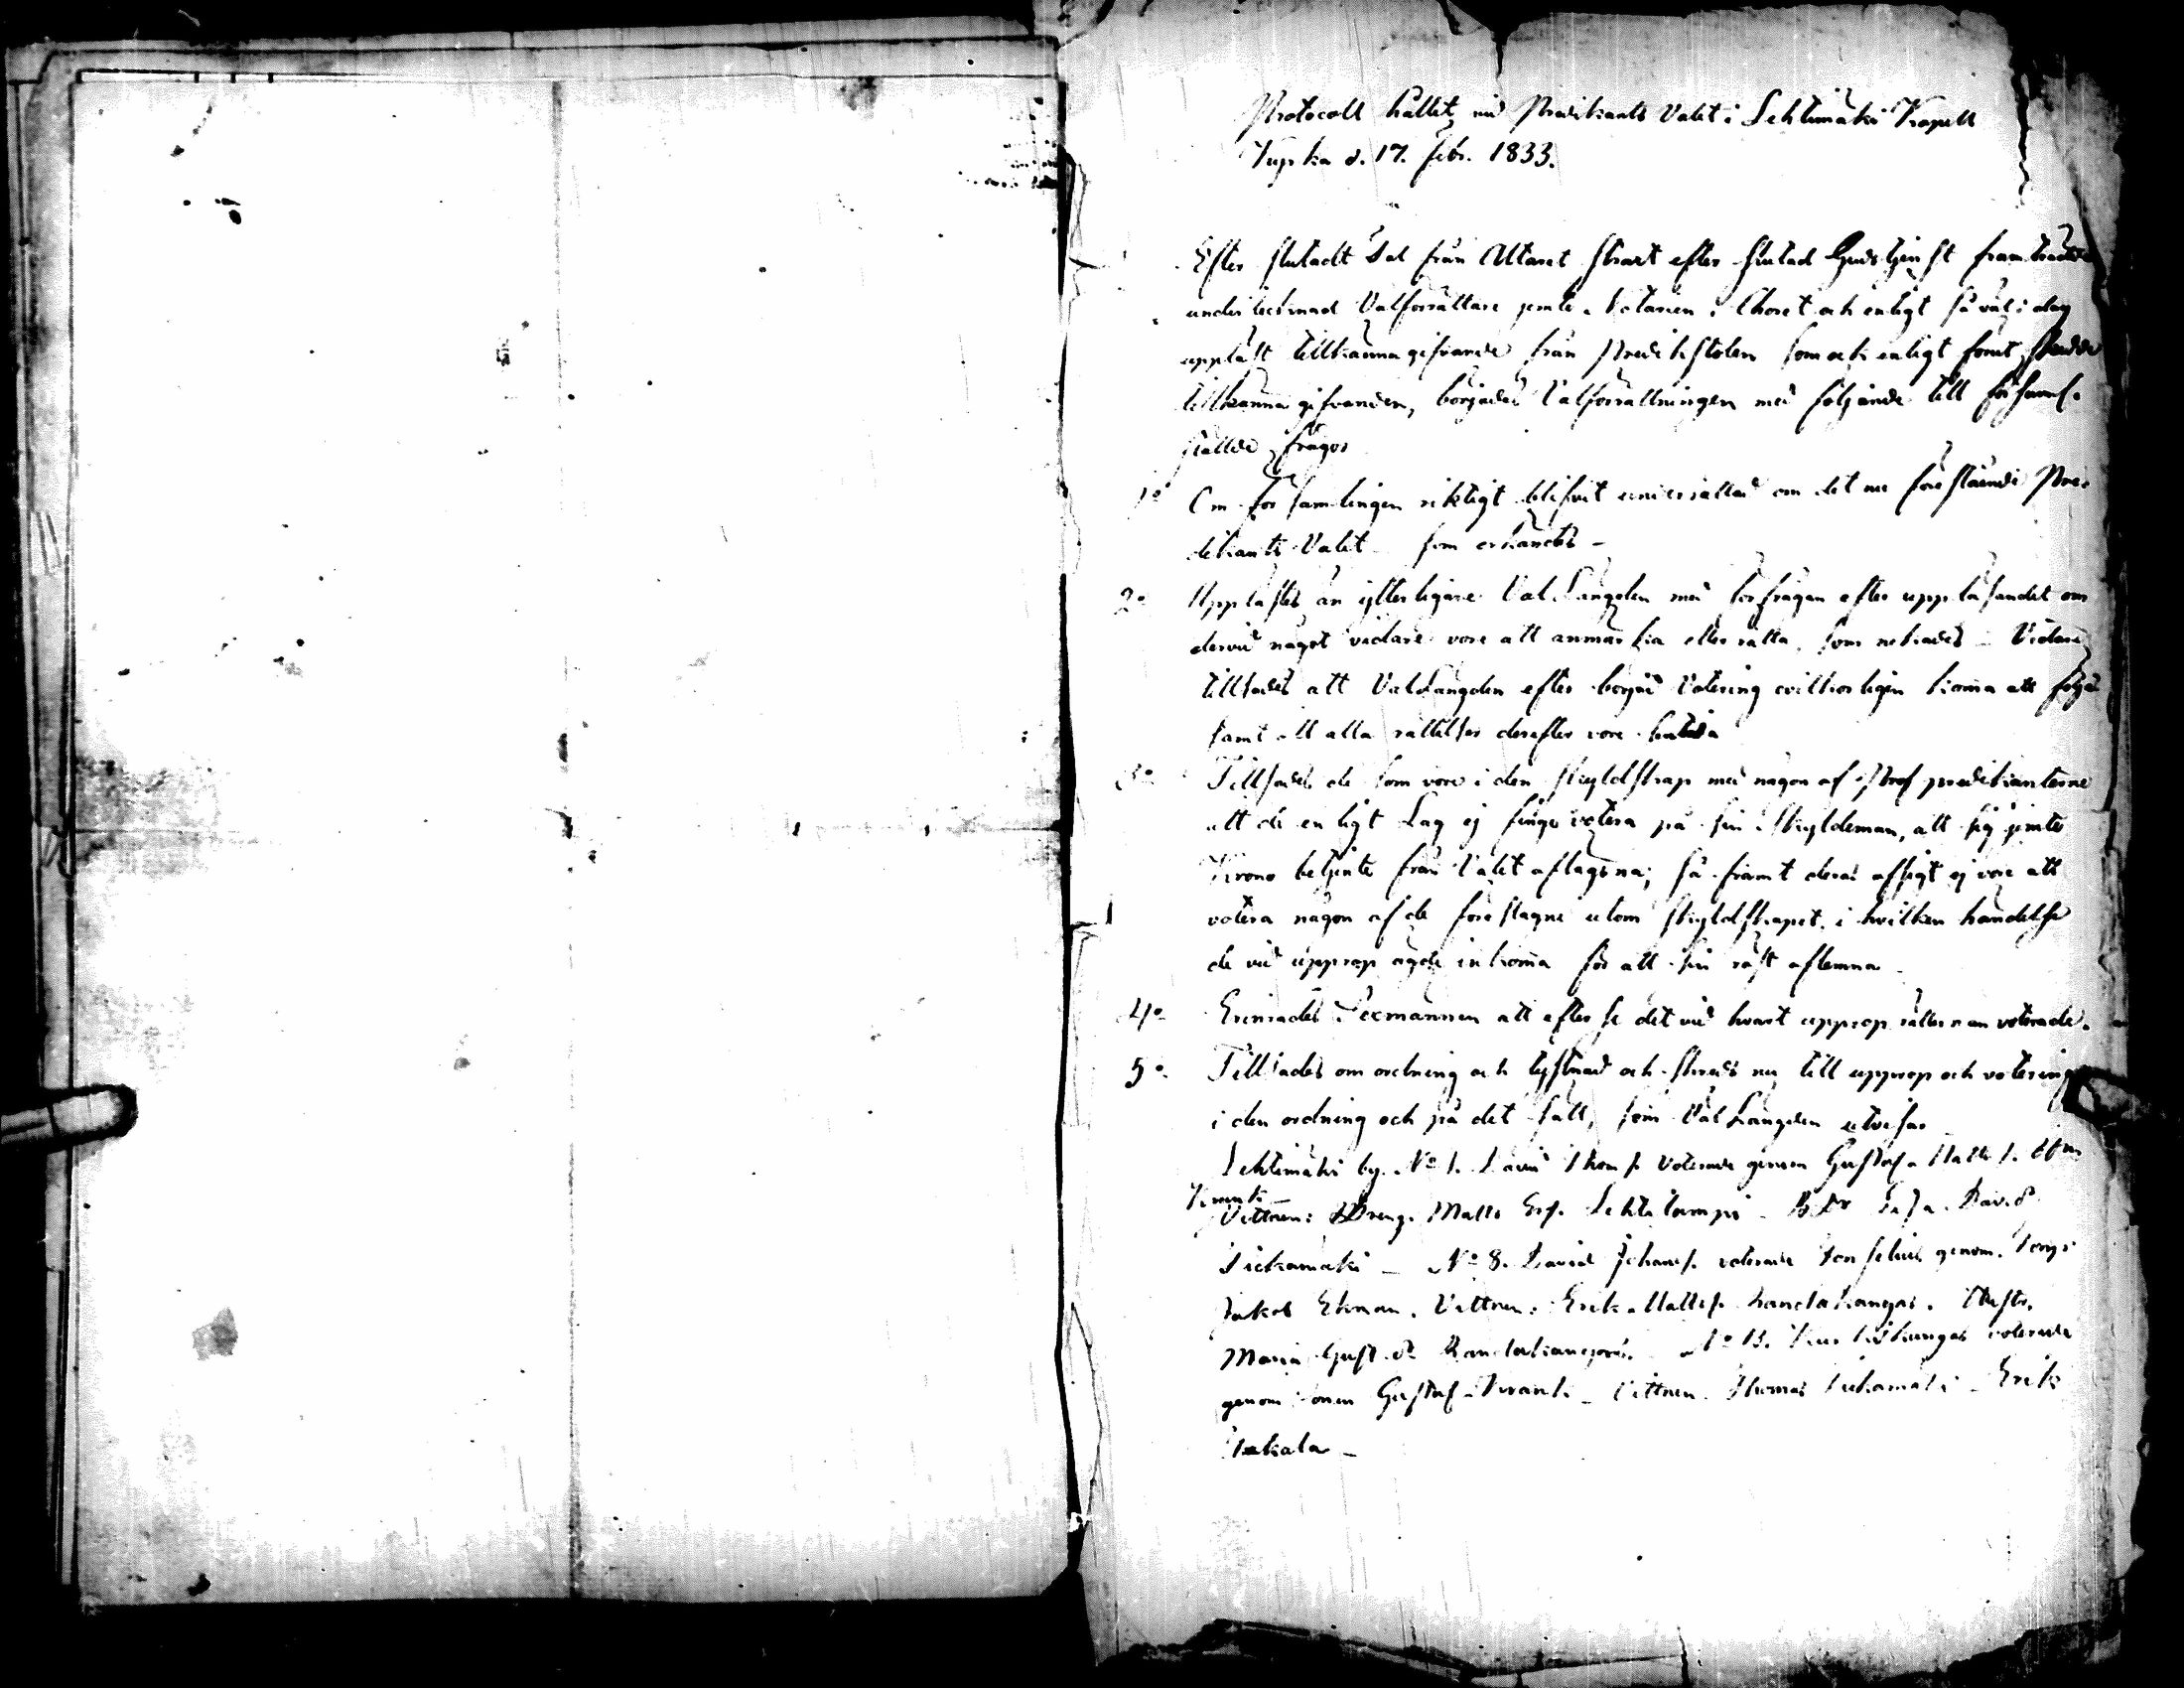 Protocoll hållet vid Predikants Valet i Lehtimäki Kapell
Kyrka d. 17. febr. 1833.
Efter slutadt Tal från Altaret straxt efter slutad Gudstjenst framträdde
undertecknad Valförrättare jemte Notarien i Choret och enligt så väl i dag
uppläst tillkännagifvande från Predikstolen som ock enligt förut skedde
tillkännagifvanden, börjades Valförrättningen med följande till församl.
stälde frågor
1o Om församlingen riktigt blifvit underrättad om det nu förestående Pre-
dikants Valet som erkändes –
2o Upplästes än ytterligare Val Längden med förfrågan efter uppläsandet om
dervid något vidare vore att anmärka eller rätta, som nekades – Vidare
tillsades att Vallängden efter börjad Votering ovilkorligen komma att följas
samt att alla rättelser derefter vore
3o Tillsades de som vore i den skyldskap med någon af Prof predikanterne
att de enligt Lag ej finge votera på sin Skyldeman, att sig jemte
Krono betjente från Valet aflägsna; så framt deras afsigt ej vore att
votera någon af de föreslagne utom skyldskapet, i hvilken händelse
de vid upprop ägde inkomma för att sin röst aflemna
4o Erinrades Sexmännen att efterse det vid hvart upprop rätter man voterade.
5o Tillsades om ordning och tystnad och skreds nu till upprop och votering
i den ordning och på det sätt, som Val Längden utvisar
Lehtimäki by. No 1. David Thoms. voterade genom Gustaf Matts.
Vittnen: Dreng. Matts Ers. Lehtilampi – David
– No 8. David Johans. voterade genom
Jakob Ekman. Vittnen: Erik Matts.
Maria Gust. dr No 13. voterade
genom sonen Gustaf – Vittnen Thomas – Erik